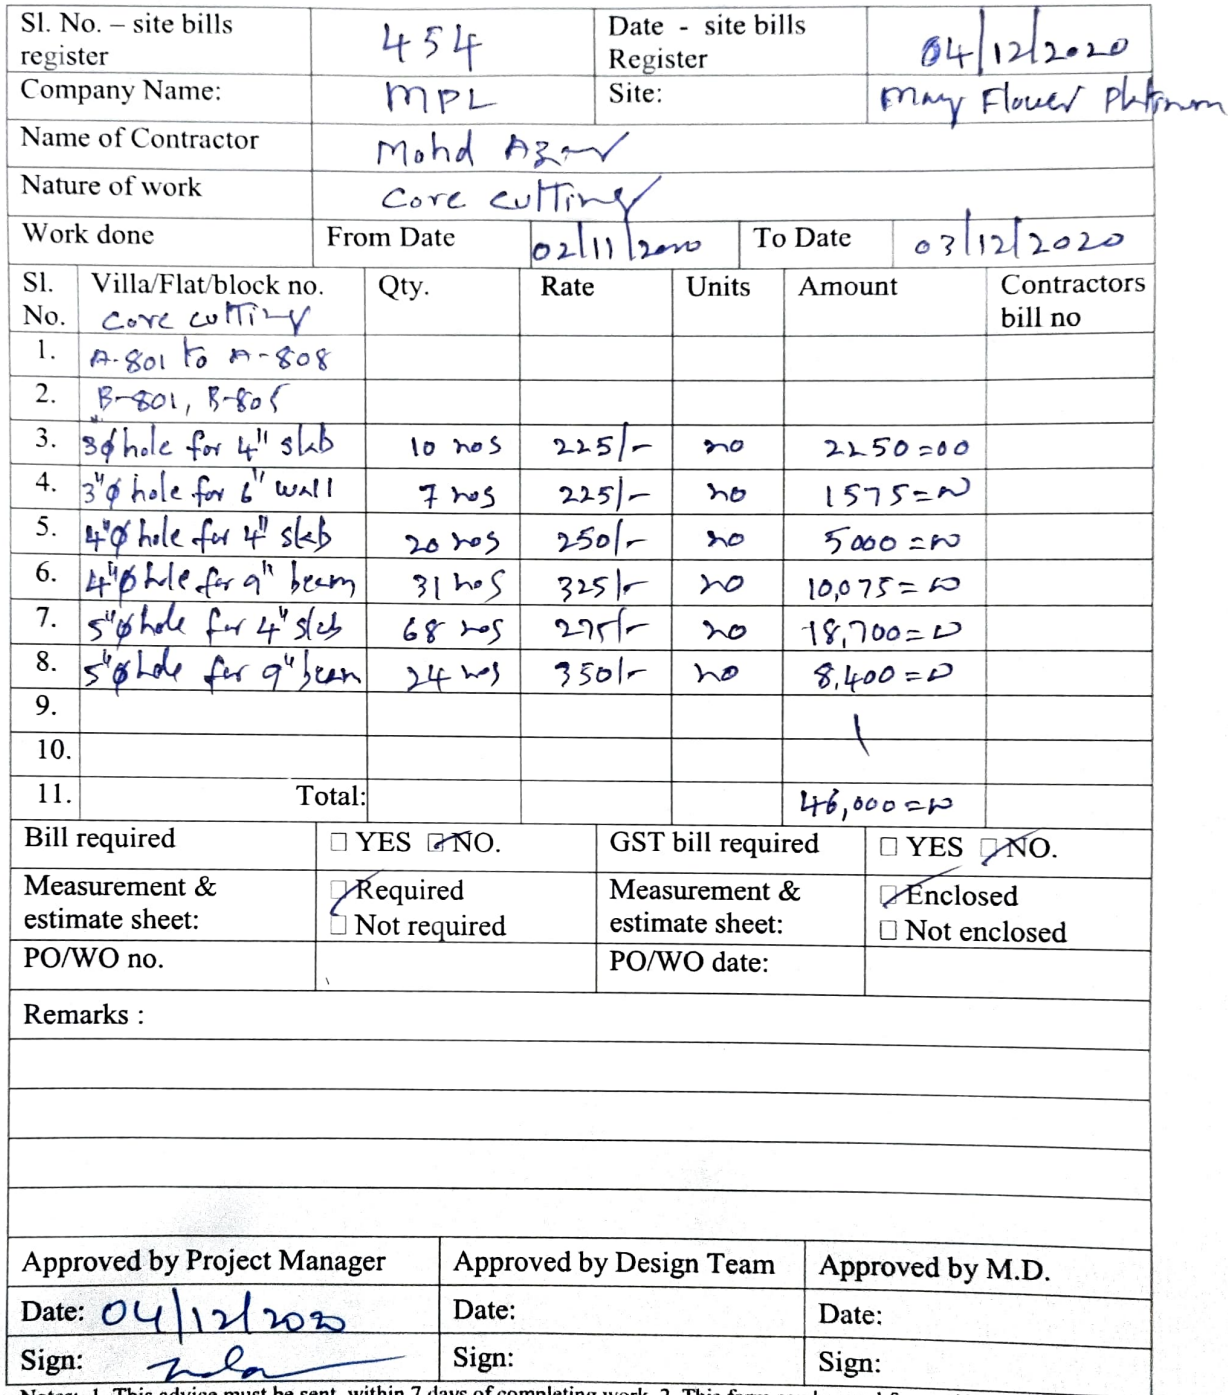 Sl. No. – site bills register 454 Date - site bills Register 04/12/2020
Company Name: MPL Site: May Flower Platinum
Name of Contractor Mohd Azar
Nature of work Core cutting
Work done From Date 02/11/2020 To Date 03/12/2020
Sl. No. Villa/Flat/block no. Core cutting Qty. Rate Units Amount Contractors bill no
1. A-801 to A-808
2. B-801, B-805
3. 3"ϕ hole for 4" slab 10 nos 225/- no 2250=00
4. 3"ϕ hole for 6" wall 7 nos 225/- no 1575=00
5. 4"ϕ hole for 4" slab 20 nos 250/- no 5000=00
6. 4"ϕ hole for 9" beam 31 nos 325/- no 10,075=00
7. 5"ϕ hole for 4" slab 68 nos 275/- no 18,700=00
8. 5"ϕ hole for 9" beam 24 nos 350/- no 8,400=00
9.
10.
11. Total: 46,000=00
Bill required □ YES ☑ NO. GST bill required □ YES ☑ NO.
Measurement & estimate sheet: ☑ Required □ Not required Measurement & estimate sheet: ☑ Enclosed □ Not enclosed
PO/WO no. PO/WO date:
Remarks :
Approved by Project Manager Approved by Design Team Approved by M.D.
Date: 04/12/2020 Date: Date:
Sign: Sign: Sign:
Notes: 1. This advice must be sent within 7 days of completing work. 2. This form